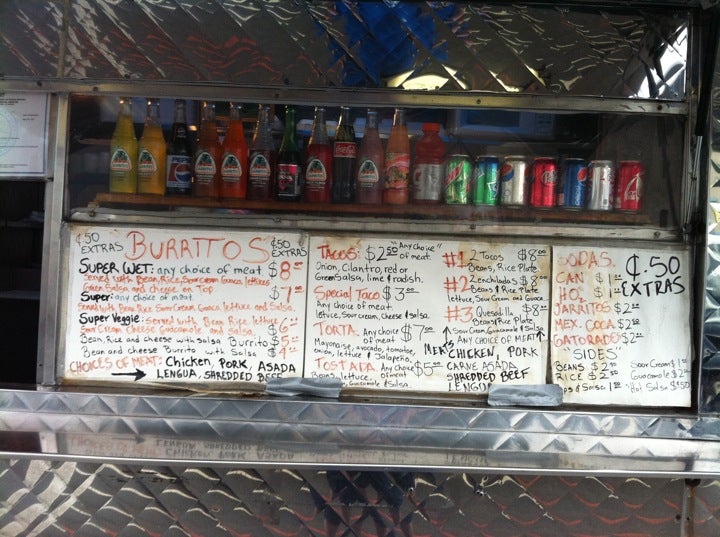 ¢.50 EXTRAS
BURRITOS
¢.50 EXTRAS
SUPER WET: any choice of meat $8.00
Served with Bean, Rice, Sour Cream, Guaca, lettuces
Green Salsa and cheese on Top
Super: any choice of meat. $7.00
Served with Bean, Rice Sour Cream, Guaca, lettuce and Salsa.
Super Veggie: Served with Bean, Rice, lettuce,
Sour Cream, Cheese Guacamole and Salsa $6.00
Bean, Rice and cheese with salsa Burrito $5.00
Bean and cheese Burrito with Salsa $4.00
CHOICES OF MEAT: Chicken, PORK, ASADA
LENGUA, SHREDDED BEEF
TACOS: $2.50 "Any choice" of meat.
Onion, Cilantro, red or
Green Salsa, lime & radish.
Special Taco $3.00
Any Choice of meat
lettuce, Sour Cream, Cheese & Salsa
TORTA. Any choice of meat $7.00
Mayonaise, avocado, tomatoe,
onion, lettuce & Jalapeño
TOSTADA. Any choice of meat $5.00
Beans, lettuce,
Guacamole & Salsa.
#1 2 Tacos $8.00
Beans, Rice Plate
#2 2 enchiladas $8.00
Beans & Rice Plate
lettuce, Sour Cream and Guaca
#3 Quesadilla $8.00
Beans & Rice Plate
Sour Cream, Guacamole & Salsa
ANY CHOICE OF MEAT
MEATS CHICKEN, PORK
CARNE ASADA
SHREDDED BEEF
LENGUA
SODAS.
CAN $1
H2O $1
JARRITOS $2
MEX. COCA $2
GATORADO $2
¢.50 EXTRAS
"SIDES"
BEANS $2
RICE $2
Sour Cream $1
Guacamole $2
Salsa $1
Hot Salsa $1.50
Jarritos
Jarritos
pepsi
Jarritos
Jarritos
Jarritos
Jarritos
Coca-Cola
Jarritos